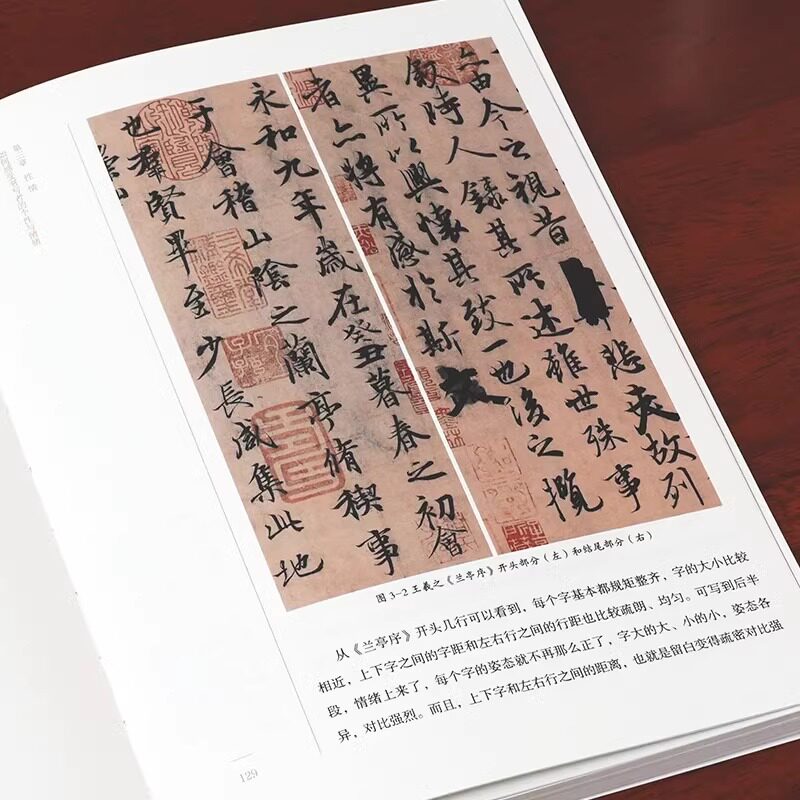 第三章 性情
永和九年歲在癸丑暮春之初會
于會稽山陰之蘭亭脩稧事
也羣賢畢至少長咸集此地
由今之視昔悲夫故列
敘時人錄其所述雖世殊事
異所以興懷其致一也後之攬
者亦將有感於斯文
图 3-2 王羲之《兰亭序》开头部分（左）和结尾部分（右）
从《兰亭序》开头几行可以看到，每个字基本都规矩整齐，字的大小比较
相近，上下字之间的字距和左右行之间的行距也比较疏朗、均匀。可写到后半
段，情绪上来了，每个字的姿态就不再那么正了，字大的大、小的小，姿态各
异，对比强烈。而且，上下字和左右行之间的距离，也就是留白变得疏密对比强
129